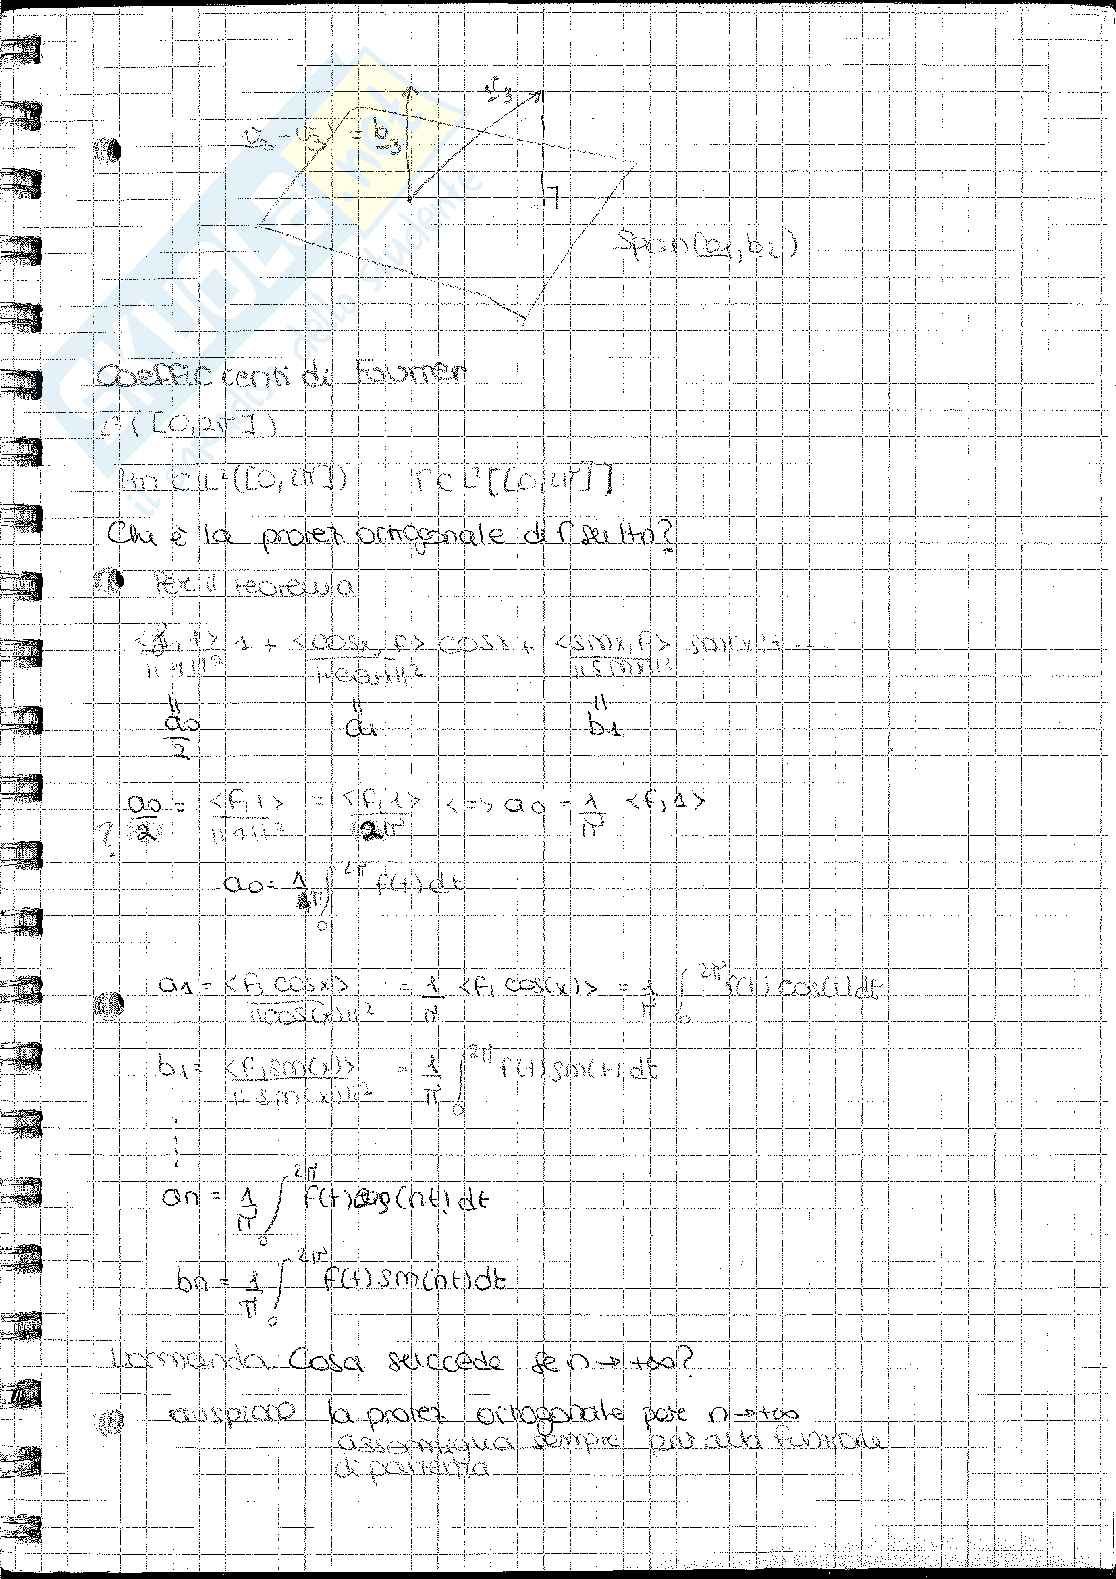 v3
v3 - v3' = b3
Span(b1, b2)
Coefficienti di Fourier
L²([0,2π])
Hn ⊂ L²([0,2π]) f ∈ L²[[0,2π]]
Chi è la proiez ortogonale di f su Hn?
Per il teorema
<1, f>/||1||² 1 + <cosx, f>/||cosx||² cosx + <sinx, f>/||sinx||² sin(x) + ...
= a0/2 = a1 = b1
a0/2 = <f,1>/||1||² = <f,1>/2π <=> a0 = 1/π <f,1>
?
a0 = 1/π ∫₀^2π f(t) dt
a1 = <f, cosx>/||cos(x)||² = 1/π <f, cos(x)> = 1/π ∫₀^2π f(t) cos(t) dt
b1 = <f, sin(x)>/||sin(x)||² = 1/π ∫₀^2π f(t) sin(t) dt
⋮
an = 1/π ∫₀^2π f(t) cos(nt) dt
bn = 1/π ∫₀^2π f(t) sin(nt) dt
Domanda Cosa succede se n → +∞?
auspicio la proiez ortogonale per n → +∞
assomiglia sempre più alla funzione
di partenza
SKUOLA.net
il mondo dello studente